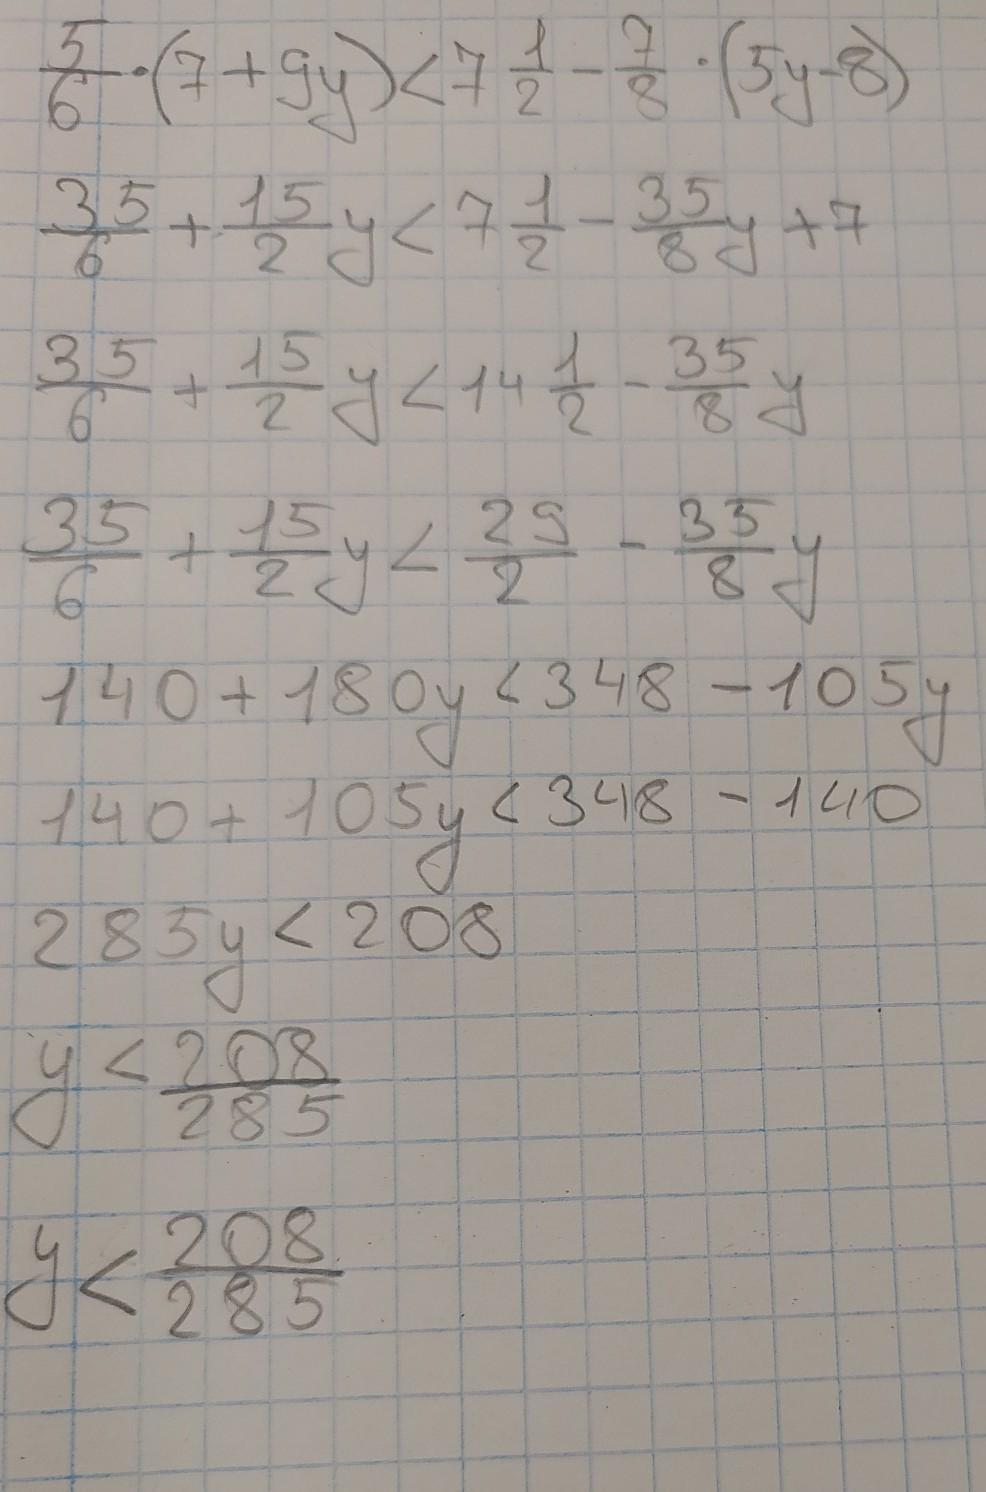 5/6 · (7 + 9y) < 7 1/2 - 7/8 · (5y - 8)
35/6 + 15/2 y < 7 1/2 - 35/8 y + 7
35/6 + 15/2 y < 14 1/2 - 35/8 y
35/6 + 15/2 y < 29/2 - 35/8 y
140 + 180y < 348 - 105y
140 + 105y < 348 - 140
285y < 208
y < 208/285
y < 208/285